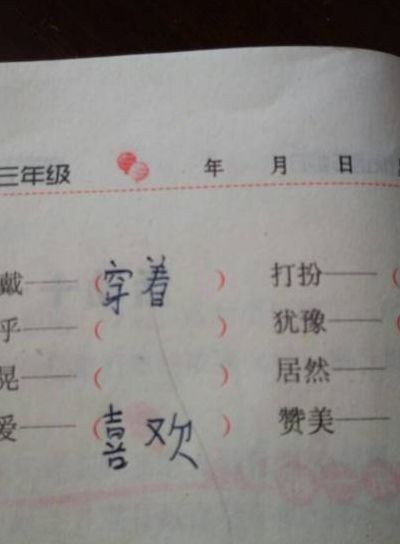 三年级 年 月 日
戴——(穿着) 打扮——(
乎——( ) 犹豫——(
晃——( ) 居然——
爱——(喜欢) 赞美——